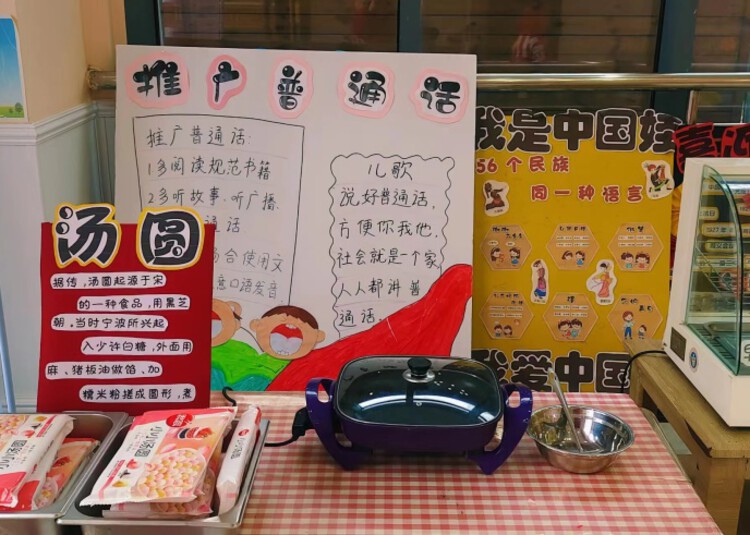 推广普通话
推广普通话:
1多阅读规范书籍
2多听故事、听广播、
通话
合使用文
意口语发音
儿歌
说好普通话,
方便你我他,
社会就是一个家
人人都讲普
通话.
我是中国娃
56个民族
同一种语言
我爱中国
汤圆
据传,汤圆起源于宋
的一种食品,用黑芝
朝。当时宁波所兴起
入少许白糖,外面用
麻、猪板油做馅、加
糯米粉搓成圆形,煮
小小汤圆